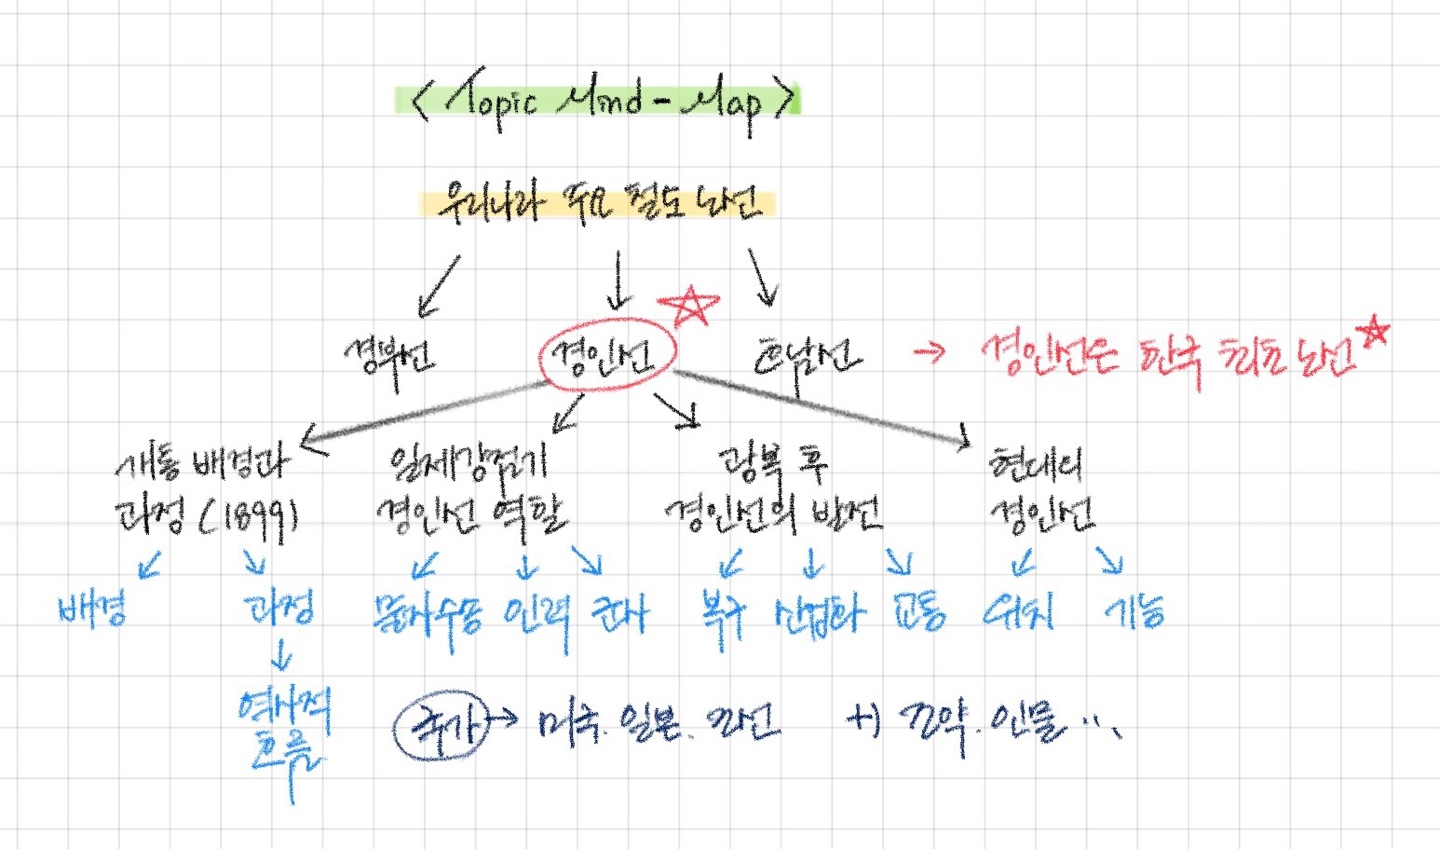 < Topic Mind-Map >
우리나라 주요 철도 노선
경부선 경인선 호남선 → 경인선은 한국 최초 노선
개통 배경과 일제강점기 광복 후 현대의
과정 (1899) 경인선 역할 경인선의 발전 경인선
배경 과정 물자수송 인력 군사 복구 산업화 교통 위치 기능
역사적
흐름
국가 → 미국. 일본. 조선 +) 조약. 인물 ...